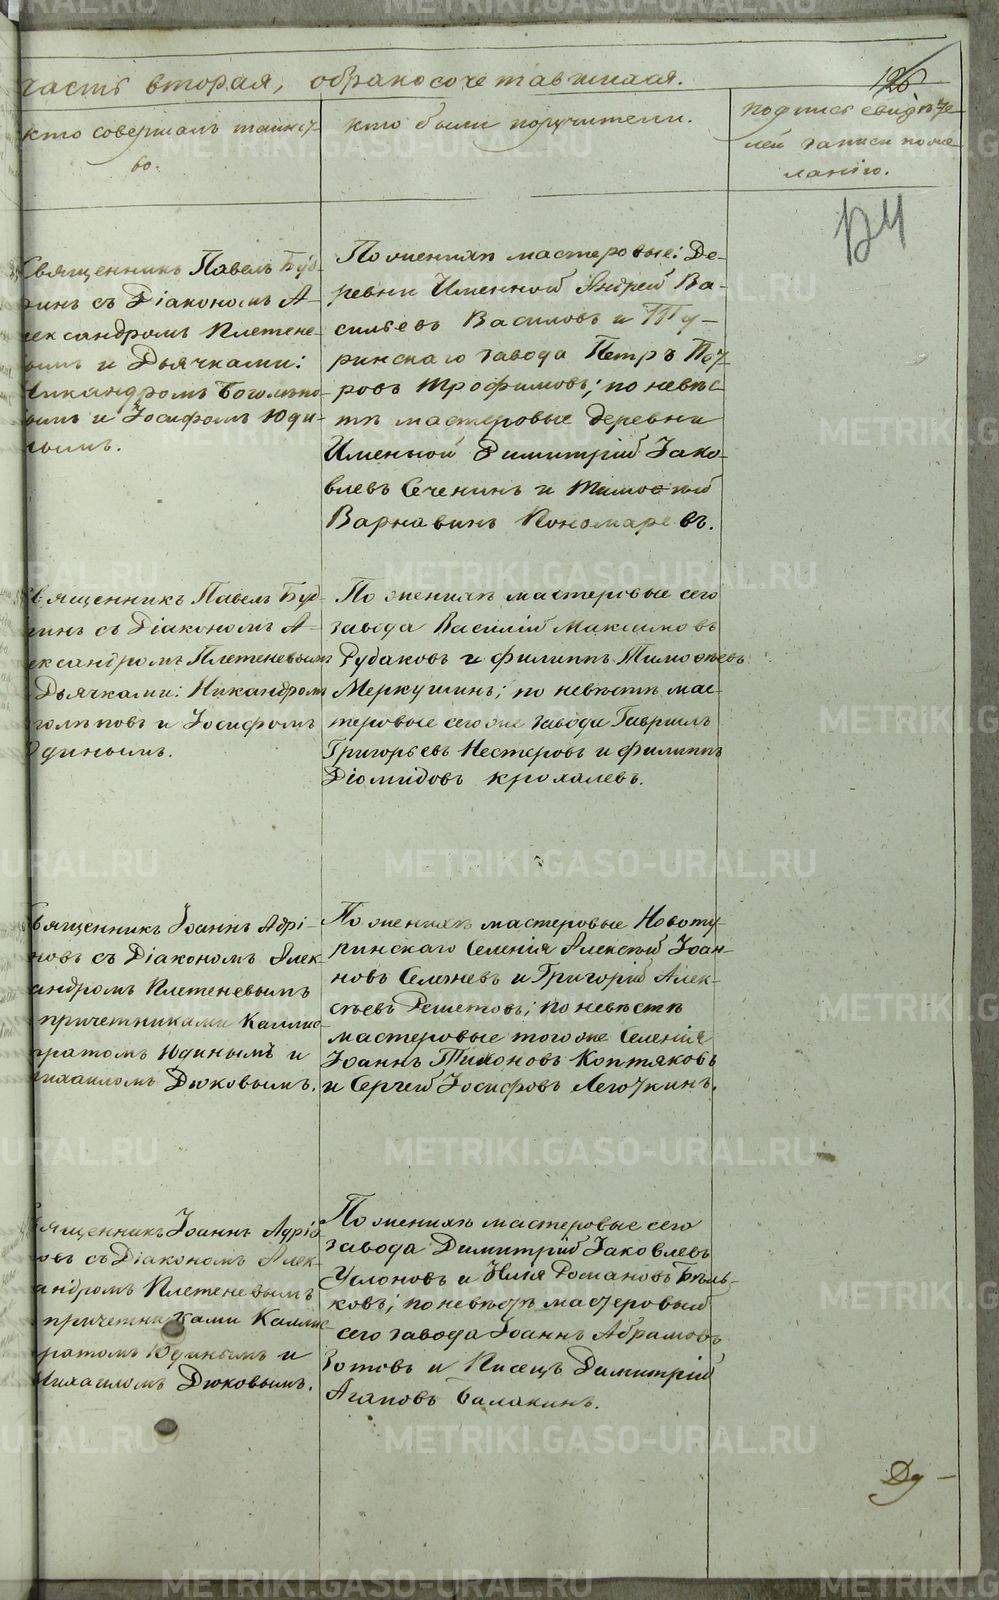 часть вторая, о бракосочетавшихся.
126
кто совершалъ таинст-
во.
кто были поручители.
подпись свидѣте-
лей записи по же-
ланію.
124
Священникъ Павелъ Буд-
ринъ съ Діакономъ А-
лександромъ Плетене-
вымъ и Дьячками:
Никандромъ Боголѣпо-
вымъ и Іосифомъ Юди-
нымъ.
По женихѣ мастеровые: Де-
ревни Именной Андрей Ва-
сильевъ Василовъ и Ту-
ринскаго завода Петръ Пет-
ровъ Трофимовъ; по невѣс-
тѣ мастеровые деревни
Именной Димитрій Яко-
влевъ Сеченинъ и Тимоѳей
Варнавинъ Пономаревъ.
Священникъ Павелъ Буд-
ринъ съ Діакономъ А-
лександромъ Плетеневымъ
Дьячками: Никандромъ
Боголѣповъ и Іосифомъ
Юдинымъ.
По женихѣ мастеровые сего
завода Василій Максимовъ
Рудаковъ и Филиппъ Тимоѳеевъ
Меркушинъ; по невѣстѣ мас-
теровые сего же завода Гавриилъ
Григорьевъ Нестеровъ и Филиппъ
Діомидовъ Крохалевъ.
Священникъ Іоаннъ Адрі-
новъ съ Діакономъ Алек-
сандромъ Плетеневымъ
причетниками Каллис-
тратомъ Юдинымъ и
Михаиломъ Дюковымъ.
По женихѣ мастеровые Новоту-
ринскаго Селенія Алексѣй Іоан-
новъ Селезневъ и Григорій Алек-
сѣевъ Решетовъ; по невѣстѣ
мастеровые того же Селенія
Іоаннъ Тихоновъ Коптяковъ
и Сергей Іосифовъ Легочкинъ.
Священникъ Іоаннъ Адріа-
новъ съ Діакономъ Алек-
сандромъ Плетеневымъ
причетниками Каллис-
тратомъ Юдинымъ и
Михаиломъ Дюковымъ.
По женихѣ мастеровые сего
завода Димитрій Яковлевъ
Услоновъ и Илія Романовъ Бѣль-
ковъ; по невѣстѣ мастеровый
сего завода Іоаннъ Абрамовъ
Зотовъ и Писецъ Димитрій
Агаповъ Балакинъ.
Ду-
METRIKI.GASO-URAL.RU